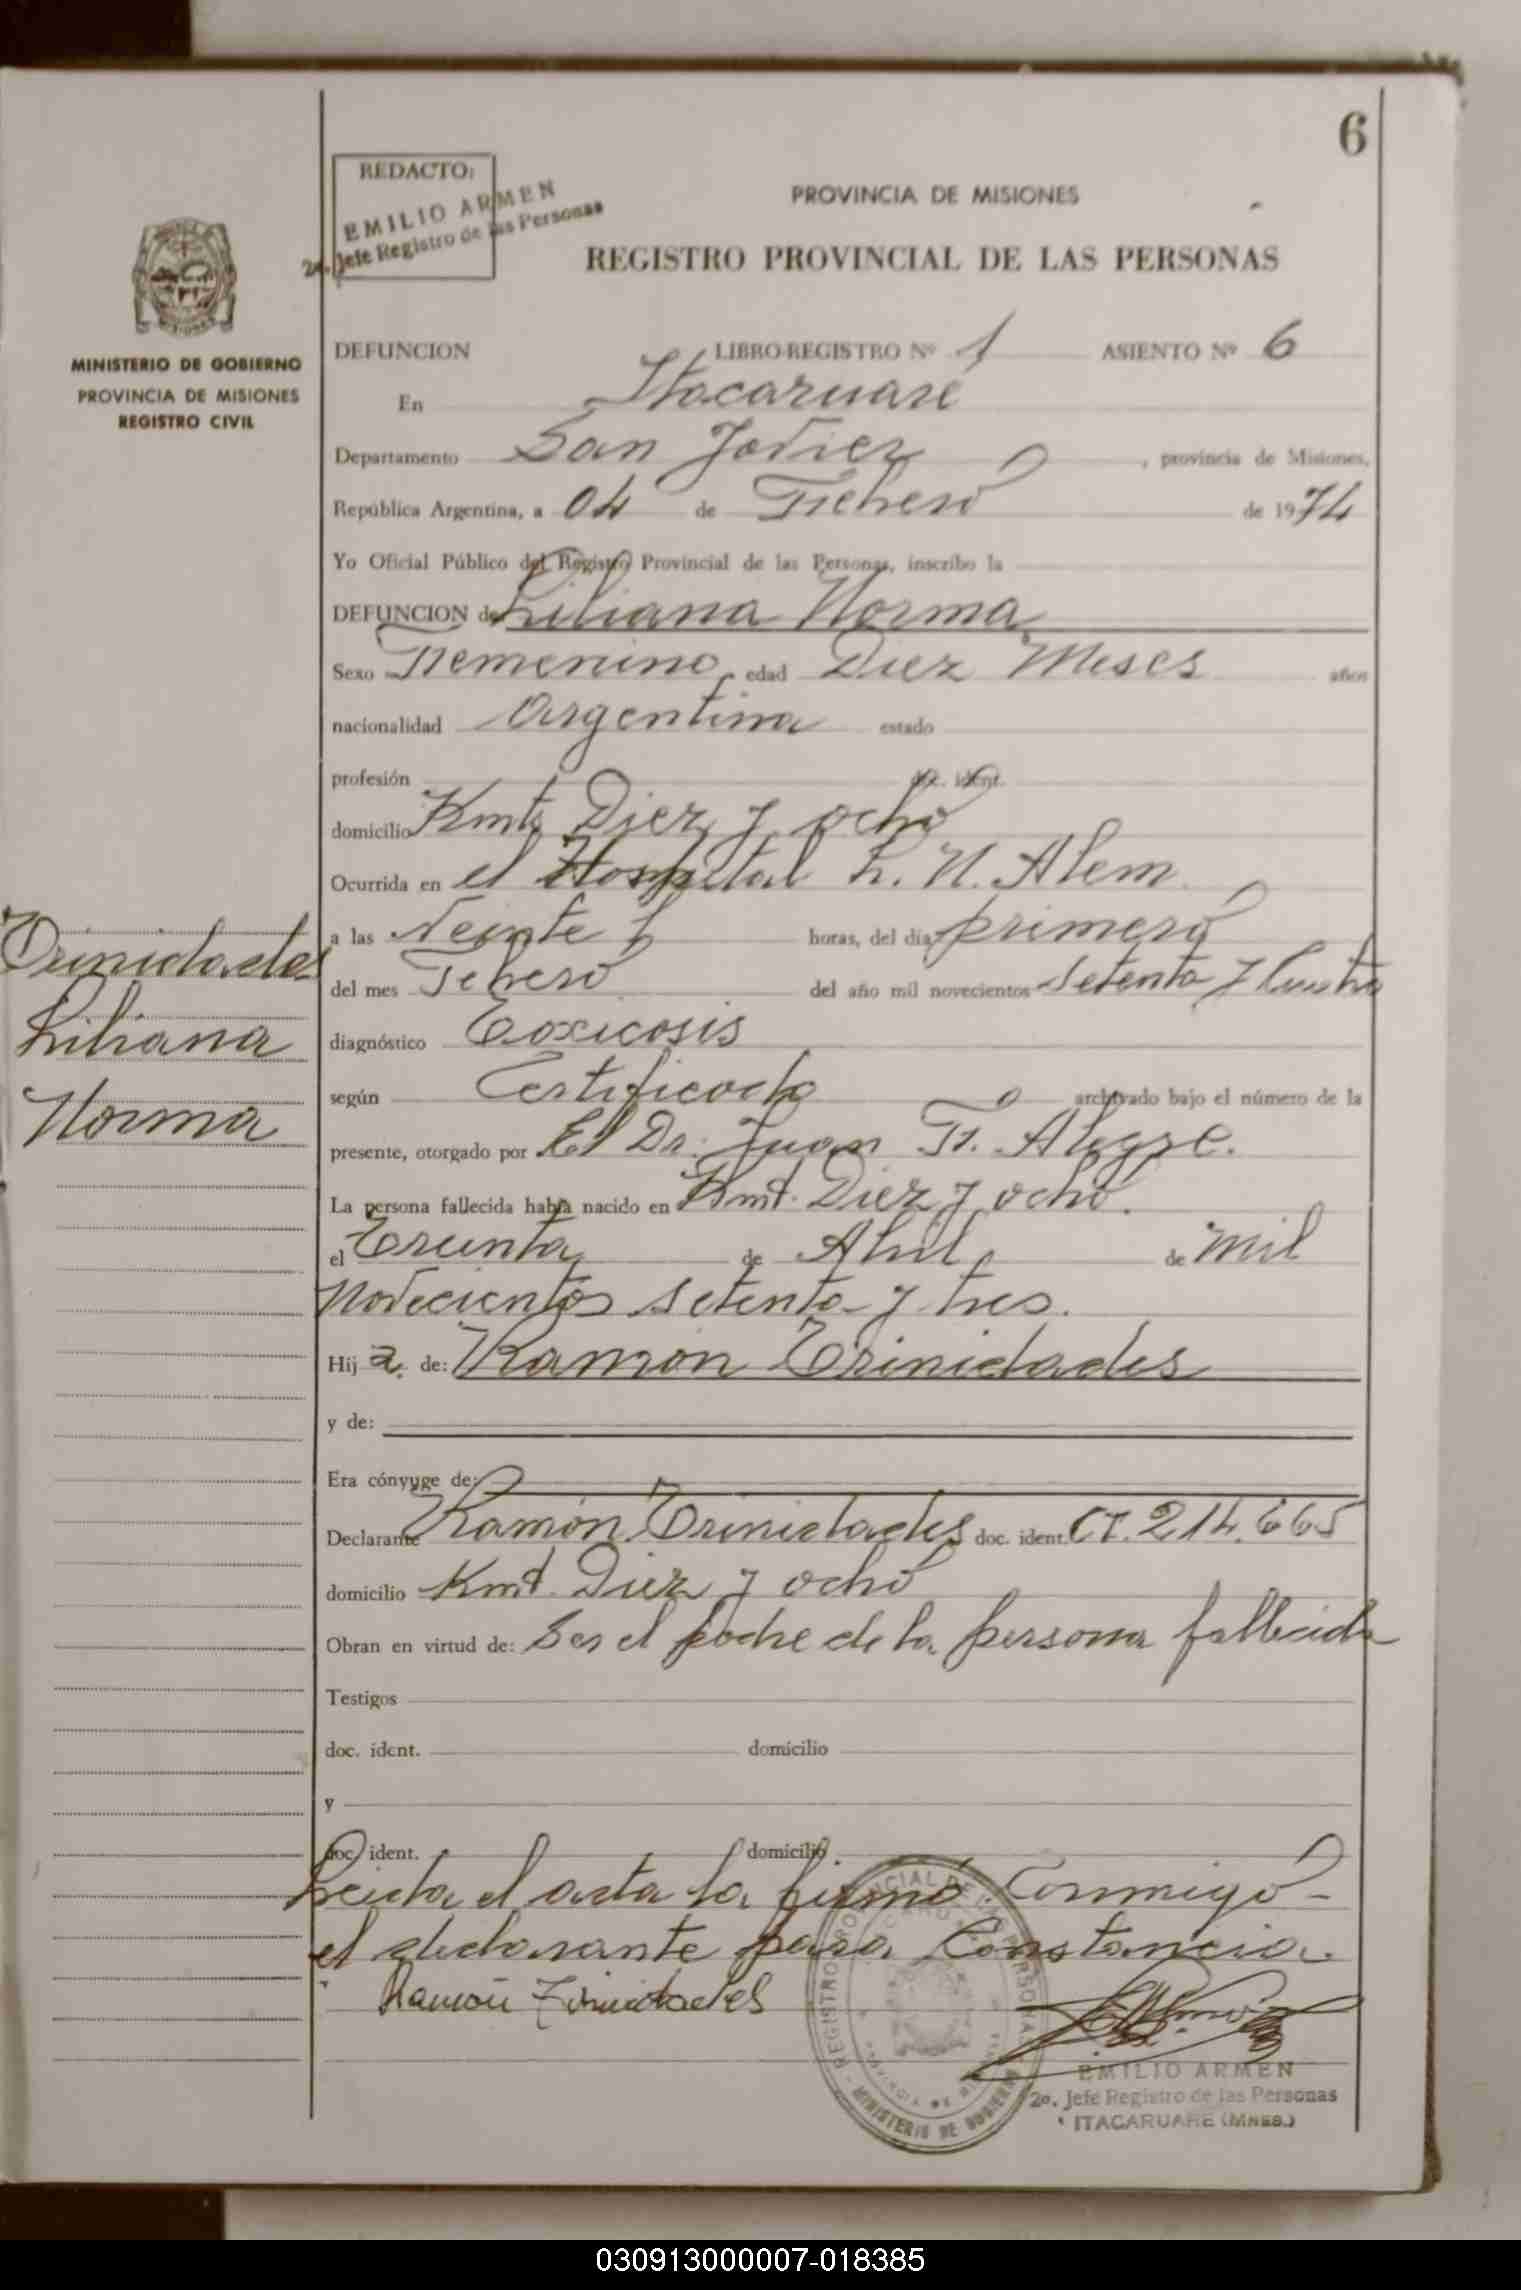 6
REDACTO:
EMILIO ARMEN
2o. Jefe Registro de las Personas
PROVINCIA DE MISIONES
REGISTRO PROVINCIAL DE LAS PERSONAS
MISIONES
MINISTERIO DE GOBIERNO
PROVINCIA DE MISIONES
REGISTRO CIVIL
DEFUNCION LIBRO-REGISTRO Nº 1 ASIENTO Nº 6
En Itacaruaré
Departamento San Javier, provincia de Misiones,
República Argentina, a 04 de Febrero de 1974
Yo Oficial Público del Registro Provincial de las Personas, inscribo la
DEFUNCION de Liliana Norma
Sexo Femenino edad Diez Meses años
nacionalidad Argentina estado
profesión doc. ident.
domicilio Kmt. Diez y ocho
Ocurrida en el Hospital L. N. Alem
a las Veinte horas, del día primero
del mes Febrero del año mil novecientos Setenta y Cuatro
diagnóstico Toxicosis
según Certificado archivado bajo el número de la
presente, otorgado por El Dr. Juan F. Alegre.
La persona fallecida había nacido en Kmt. Diez y ocho.
el Treinta de Abril de Mil
Novecientos Setenta y tres.
Hij a. de: Ramón Trinidades
y de:
Era cónyuge de:
Declarante Ramón Trinidades doc. ident. CI. 214.665
domicilio Kmt. Diez y ocho
Obran en virtud de: Ser el padre de la persona fallecida
Testigos
doc. ident. domicilio
y
doc. ident. domicilio
Leida el acta la firmó Conmigo -
el declarante para Constancia.
Ramón Trinidades
Trinidades
Liliana
Norma
REGISTRO PROVINCIAL DE LAS PERSONAS
MINISTERIO DE GOBIERNO
EMILIO ARMEN
2o. Jefe Registro de las Personas
ITACARUARE (MNES.)
030913000007-018385